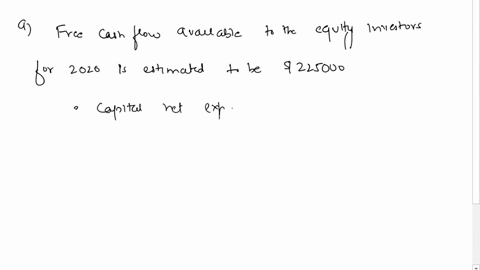 a) Free cash flow available to the equity investors
for 2020 is estimated to be $ 225000
• Capital net exp.